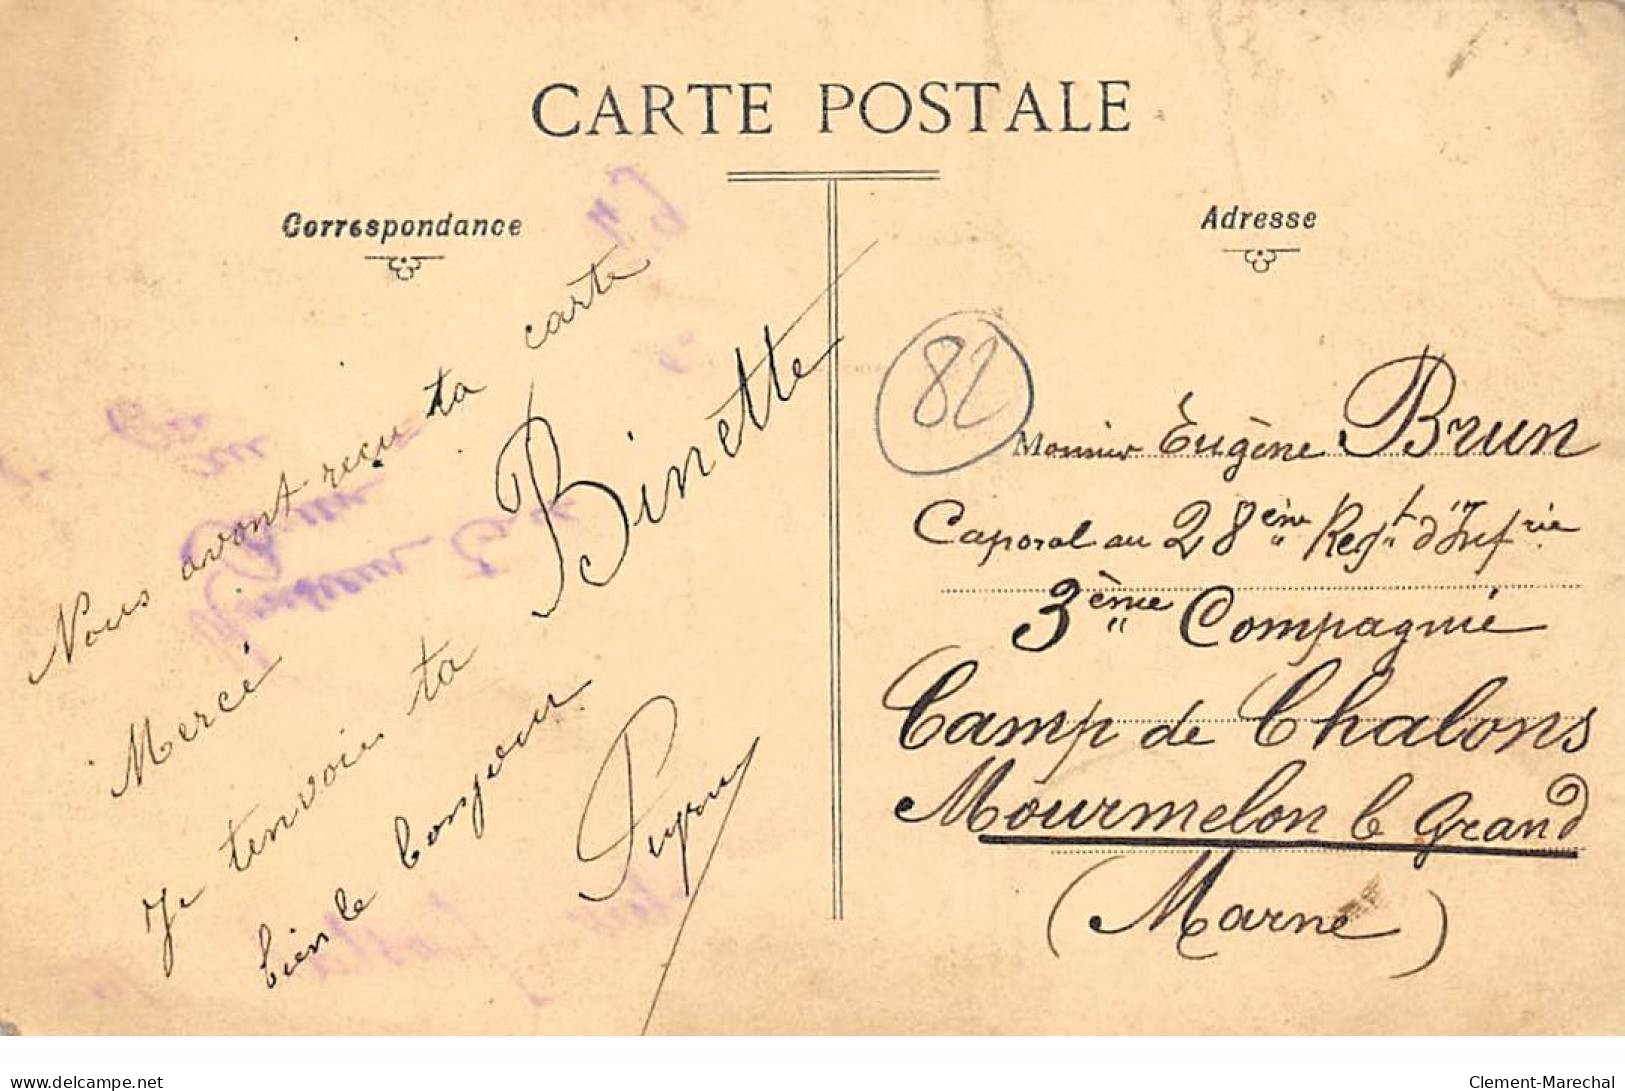 CARTE POSTALE
Correspondance
Nous avont reçu ta carte
Mercé
Je tenvoie ta Binette
bien le bonjour
Adresse
82
Monsieur Eugène Brun
Caporal au 28ème Regt d'Infrie
3ème Compagnie
Camp de Chalons
Mourmelon le Grand
(Marne)
www.delcampe.net
Clement-Marechal